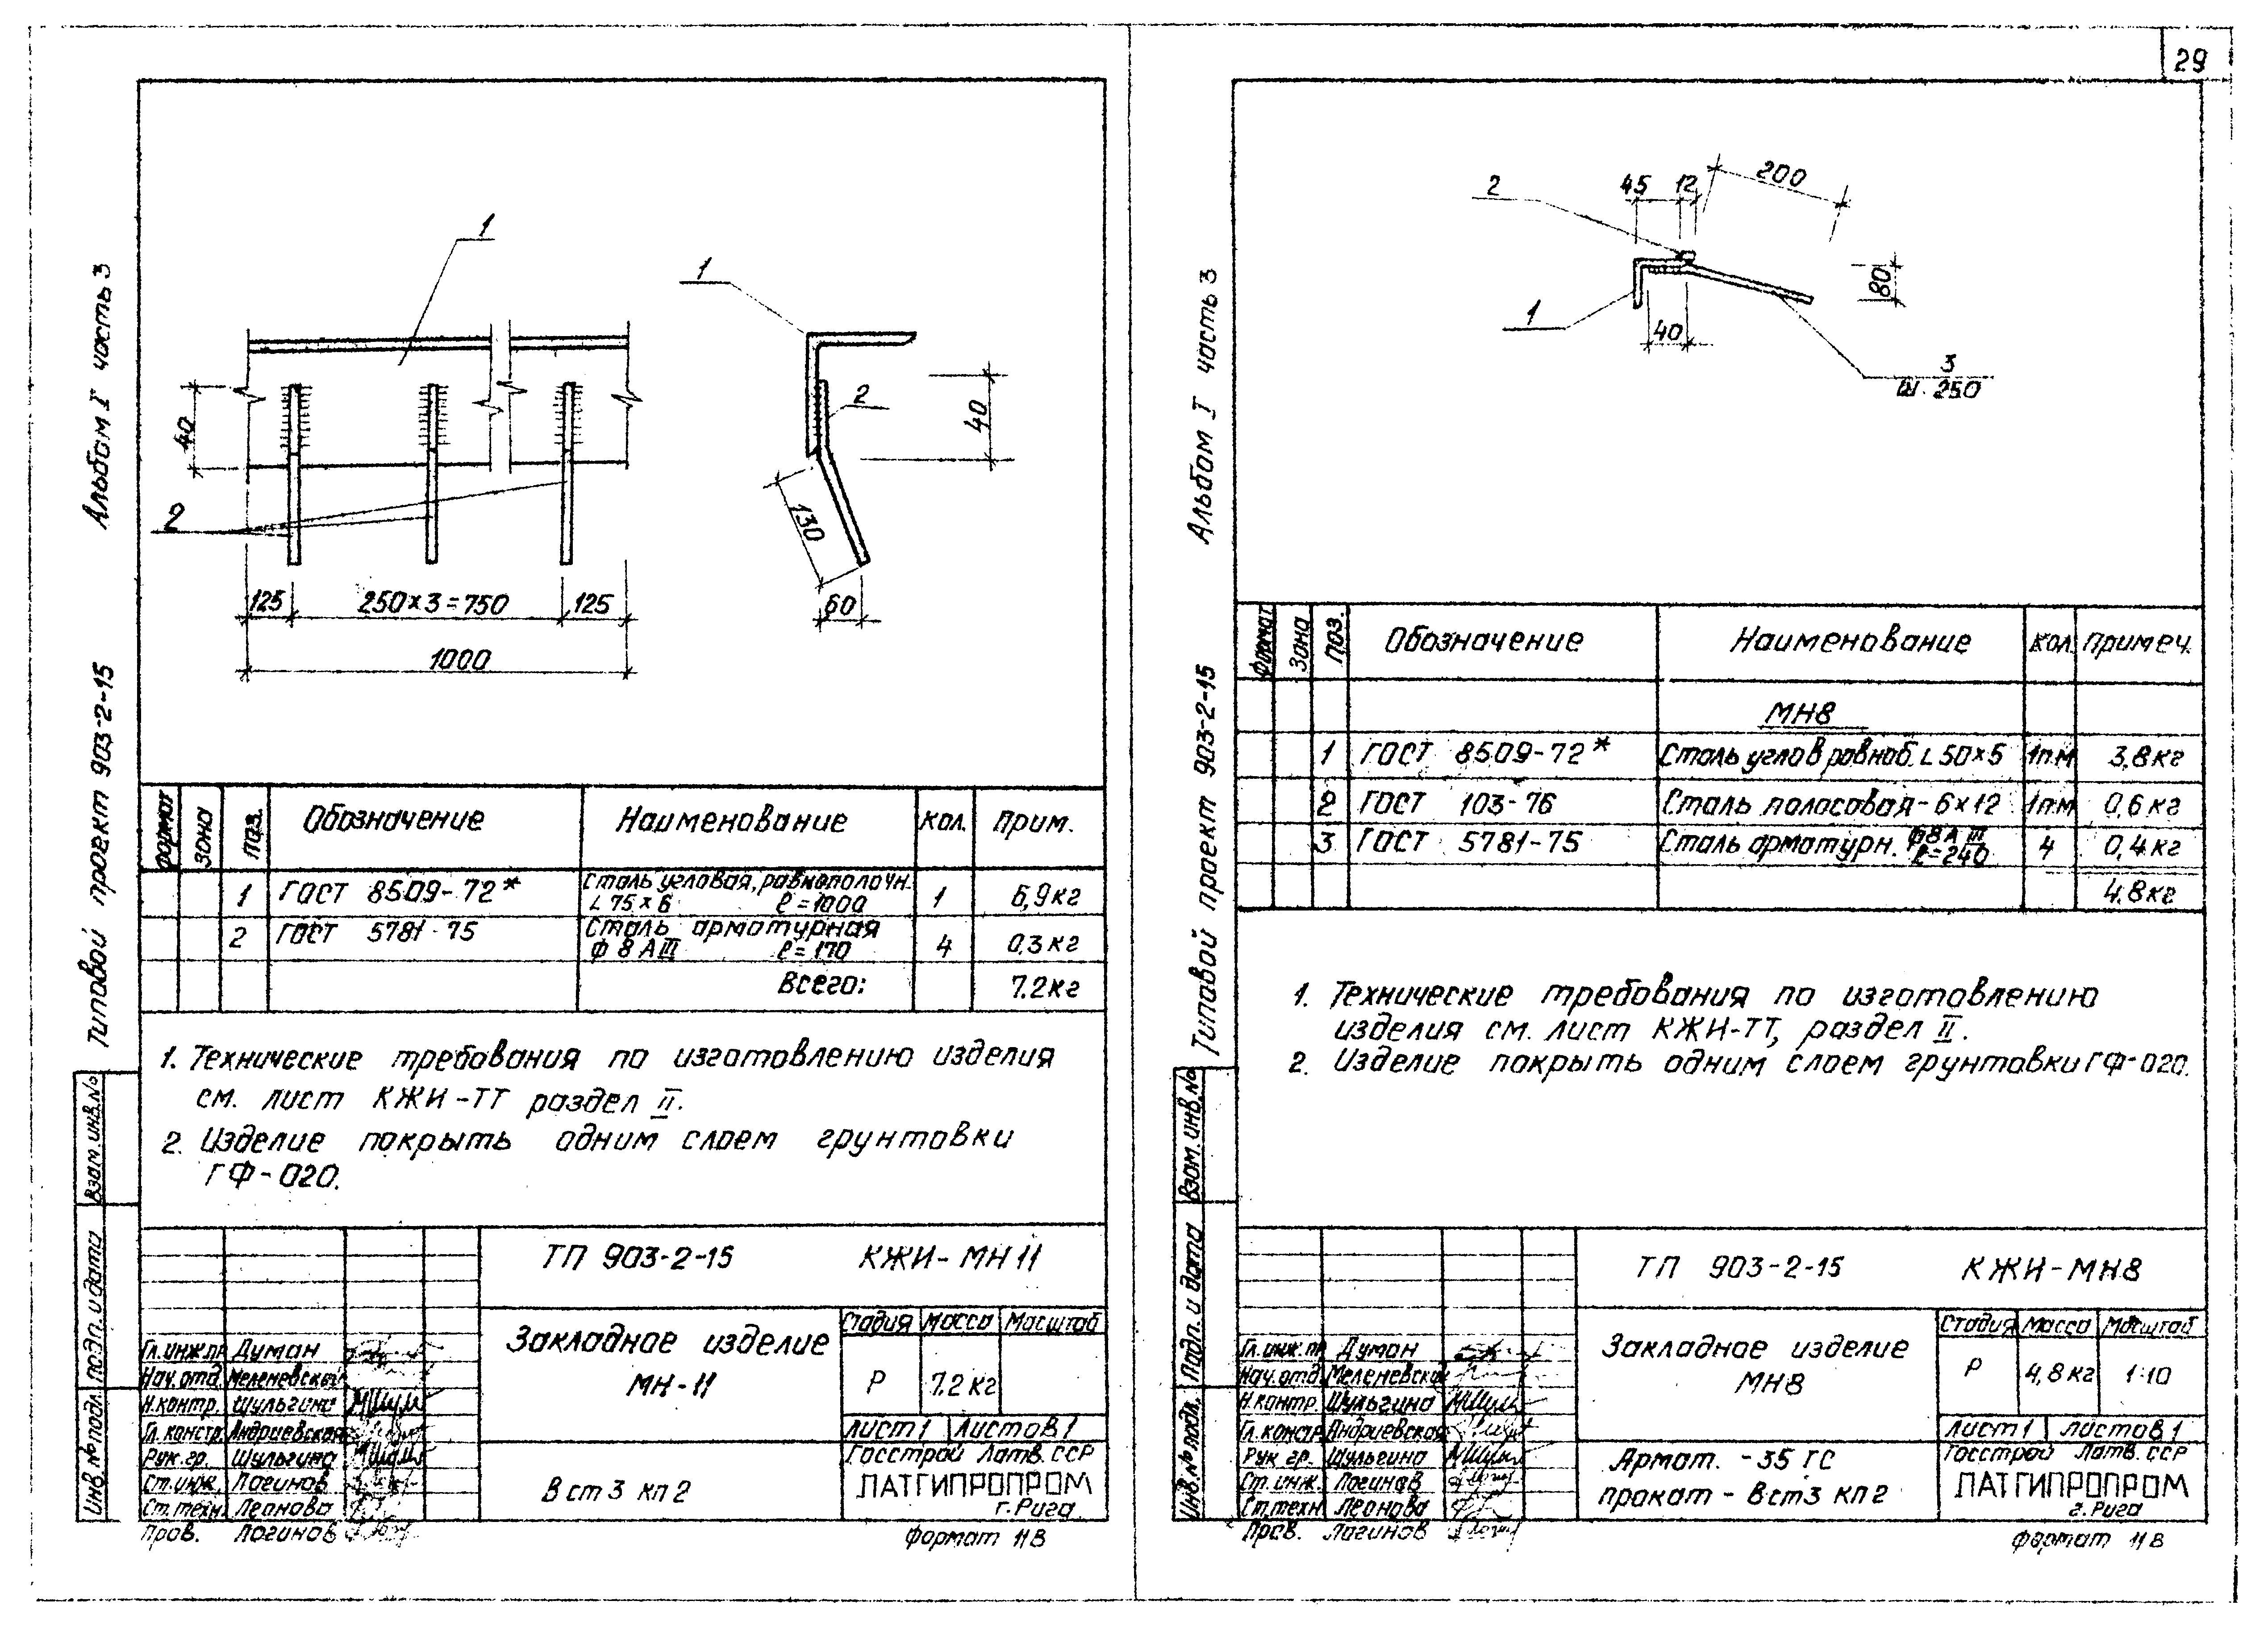 29
Альбом I часть 3
Типовой проект 903-2-15
Взам. инв.№
Подп. и дата
Инв.№ подл.
1
1
2
2
40
40
130
60
125
250×3=750
125
1000
формат
зона
поз.
Обозначение
Наименование
кол.
прим.
1 ГОСТ 8509-72* Сталь угловая, равнополочн. L 75×6 ℓ=1000 1 6,9кг
2 ГОСТ 5781-75 Сталь арматурная ф 8 АIII ℓ=170 4 0,3кг
Всего: 7.2кг
1. Технические требования по изготовлению изделия
см. лист КЖИ-ТТ раздел II.
2. Изделие покрыть одним слоем грунтовки
ГФ-020.
ТП 903-2-15 КЖИ-МН 11
Закладное изделие
МН-11
Стадия Масса Масштаб
Р 7.2 кг
Лист 1 Листов 1
Гл.инж.пр. Думан
Нач.отд. Меленевский
Н.контр. Шульгина
Гл.констр. Андриевская
Рук.гр. Шульгина
Ст.инж. Логинов
Ст.техн. Леонова
Пров. Логинов
В ст 3 кп 2
Госстрой Латв. ССР
ЛАТГИПРОПРОМ
г.Рига
Формат 11В
Альбом I часть 3
Типовой проект 903-2-15
Взам. инв.№
Подп. и дата
Инв.№ подл.
2
45
12
200
80
1
40
3
Ш. 250
формат
зона
поз.
Обозначение
Наименование
кол.
Примеч.
МН8
1 ГОСТ 8509-72* Сталь углов равноб. L 50×5 1п.м 3,8кг
2 ГОСТ 103-76 Сталь полосовая-6×12 1п.м 0,6кг
3 ГОСТ 5781-75 Сталь арматурн. ф8 АIII ℓ=240 4 0,4кг
4.8кг
1. Технические требования по изготовлению
изделия см. лист КЖИ-ТТ, раздел II.
2. Изделие покрыть одним слоем грунтовки ГФ-020.
ТП 903-2-15 КЖИ-МН8
Закладное изделие
МН8
Стадия Масса Масштаб
Р 4,8 кг 1:10
Лист 1 Листов 1
Гл.инж.пр. Думан
Нач.отд. Меленевский
Н.контр. Шульгина
Гл.констр. Андриевская
Рук.гр. Шульгина
Ст.инж. Логинов
Ст.техн. Леонова
Пров. Логинов
Армат. - 35 ГС
прокат - Вст3 кп2
Госстрой Латв. ССР
ЛАТГИПРОПРОМ
г.Рига
Формат 11В